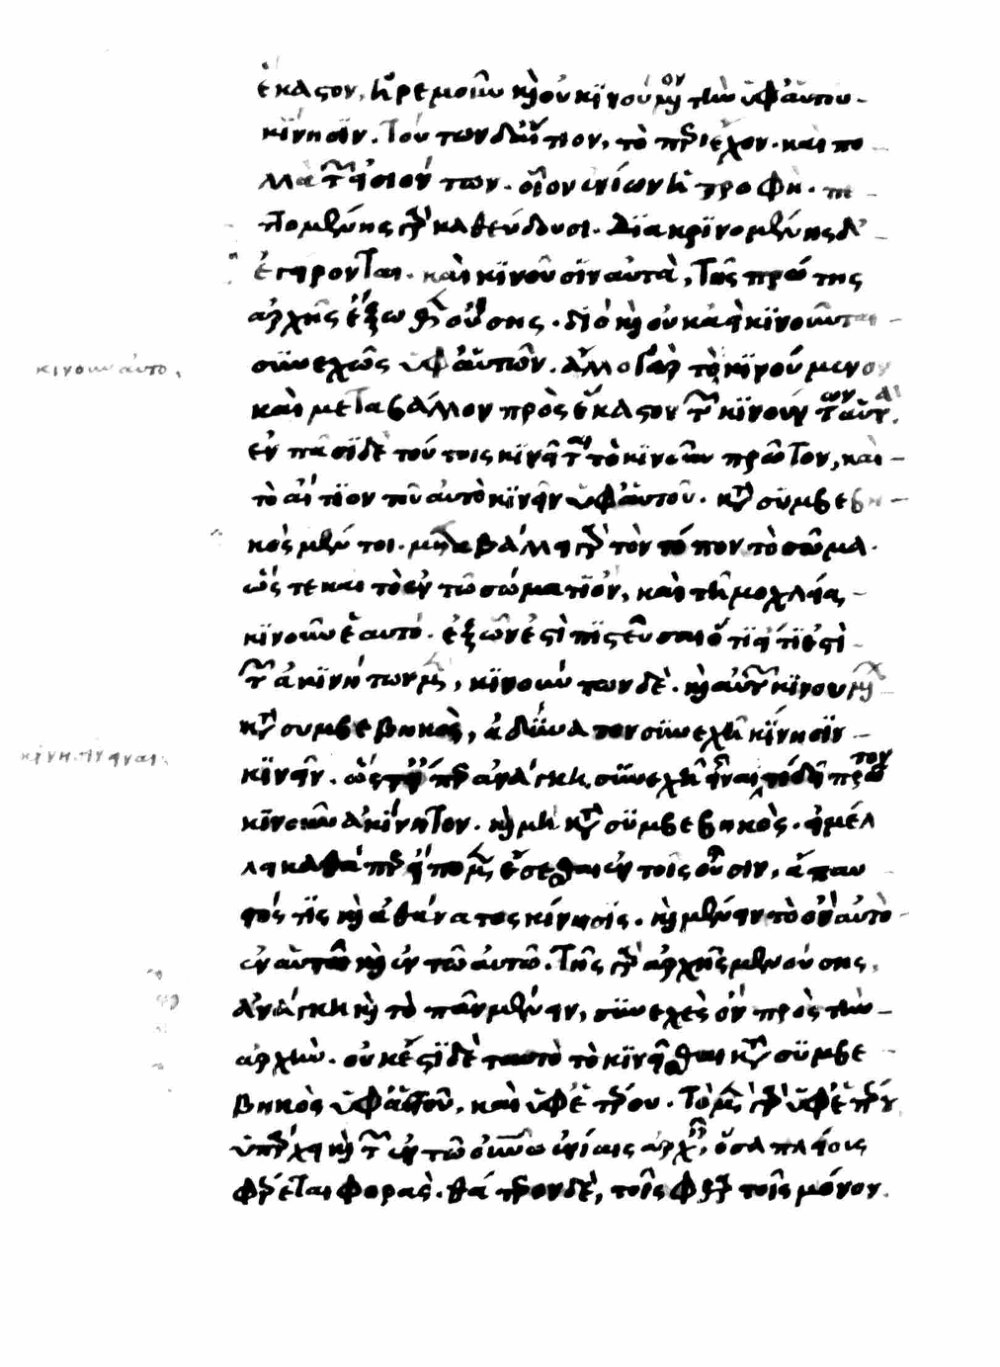 ἕκαστον. ἠρεμοῦν καὶ οὐ κινούμενον τὴν ὑφ' αὑτοῦ
κίνησιν. τούτων δ' αἴτιον, τὸ περιέχον. καὶ πο
λλὰ τῶν εἰσιόντων. οἷον ἐνίων ἡ τροφή. πε
ττομένης μὲν γὰρ καθεύδουσι. διακρινομένης δ'
ἐγείρονται. καὶ κινοῦσιν αὑτὰ, τῆς πρώτης
ἀρχῆς ἔξωθεν οὔσης. διὸ καὶ οὐκ ἀεὶ κινοῦνται
συνεχῶς ὑφ' αὑτῶν. ἄλλο γὰρ τὸ κινούμενον
κινοῦν αὐτό.
καὶ μεταβάλλον πρὸς ἕκαστον τῶν κινούντων αὑτά.
ἐν πᾶσι δὲ τούτοις κινεῖται τὸ κινοῦν πρῶτον, καὶ
τὸ αἴτιον τοῦ αὐτὸ κινεῖν ὑφ' αὑτοῦ. κατὰ συμβεβη
κὸς μέν τοι. μεταβάλλει γὰρ τὸν τόπον τὸ σῶμα.
ὥστε καὶ τὸ ἐν τῷ σώματι ὂν, καὶ τῇ μοχλείᾳ
κινοῦν ἑαυτό. ἐξ ὧν ἐστὶ πιστεῦσαι ὅτι εἴ τι ἐστὶ
τῶν ἀκινήτων μὲν, κινούντων δὲ. καὶ αὐτῶν κινουμένων
κατὰ συμβεβηκὸς, ἀδύνατον συνεχῆ κίνησιν
κίνησιν εἶναι.
κινεῖν. ὥστ' εἴπερ ἀνάγκη συνεχῆ εἶναι τι δεῖ πρῶτον
κινοῦν ἀκίνητον. καὶ μὴ κατὰ συμβεβηκὸς. εἰ μέλ
λει καθάπερ εἴπομεν, ἔσεσθαι ἐν τοῖς οὖσιν, ἄπαυ
στός τις καὶ ἀθάνατος κίνησις. καὶ μένειν τὸ ὂν αὐτὸ
ἐν αὑτῷ καὶ ἐν τῷ αὐτῷ. τῆς γὰρ ἀρχῆς μενούσης,
ἀνάγκη καὶ τὸ πᾶν μένειν, συνεχὲς ὂν πρὸς τὴν
ἀρχὴν. οὐκ ἔστι δὲ ταυτὸ τὸ κινεῖσθαι κατὰ συμβε
βηκὸς ὑφ' αὑτοῦ, καὶ ὑφ' ἑτέρου. τὸ μὲν γὰρ ὑφ' ἑτέρου
ὑπάρχει καὶ τῶν ἐν τῷ οὐρανῷ ἐνίαις ἀρχαῖς, ὅσα πλείους
φέρεται φορὰς. θάτερον δὲ, τοῖς φθαρτοῖς μόνον.